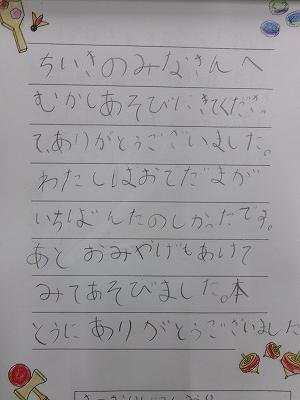 ちいきのみなさんへ
むかしあそびにきてくださっ
て、ありがとうございました。
わたしはおてだまが
いちばんたのしかったです。
あと おみやげもあけて
みてあそびました。本
とうに ありがとうございました